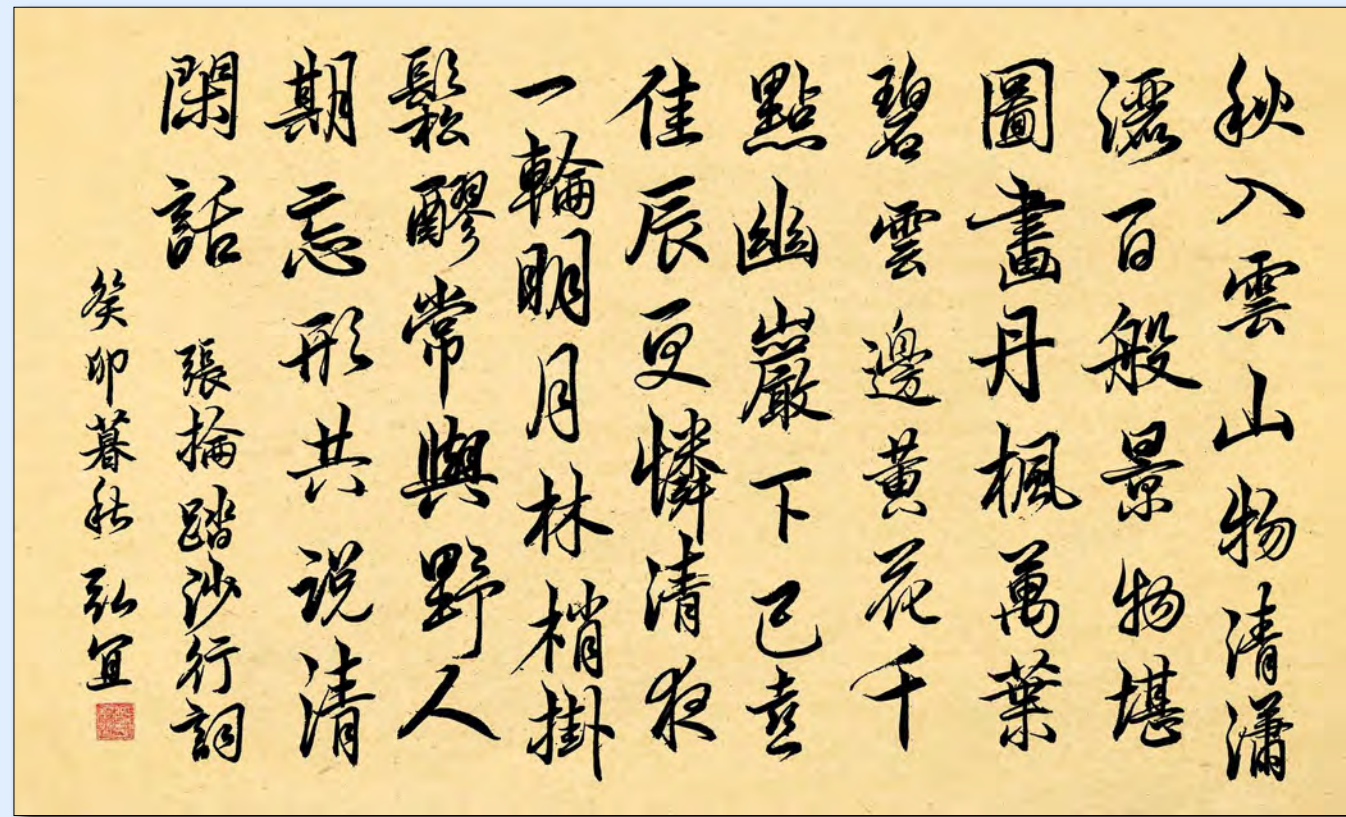 秋入雲山物清瀟
灑百般景物堪
圖畫丹楓萬葉
碧雲邊黄花千
點幽巖下已喜
佳辰更憐清夜
一輪明月林梢掛
鬆醪常與野人
期忘形共说清
閑話
張掄踏沙行詞
癸卯暮秋弘宜